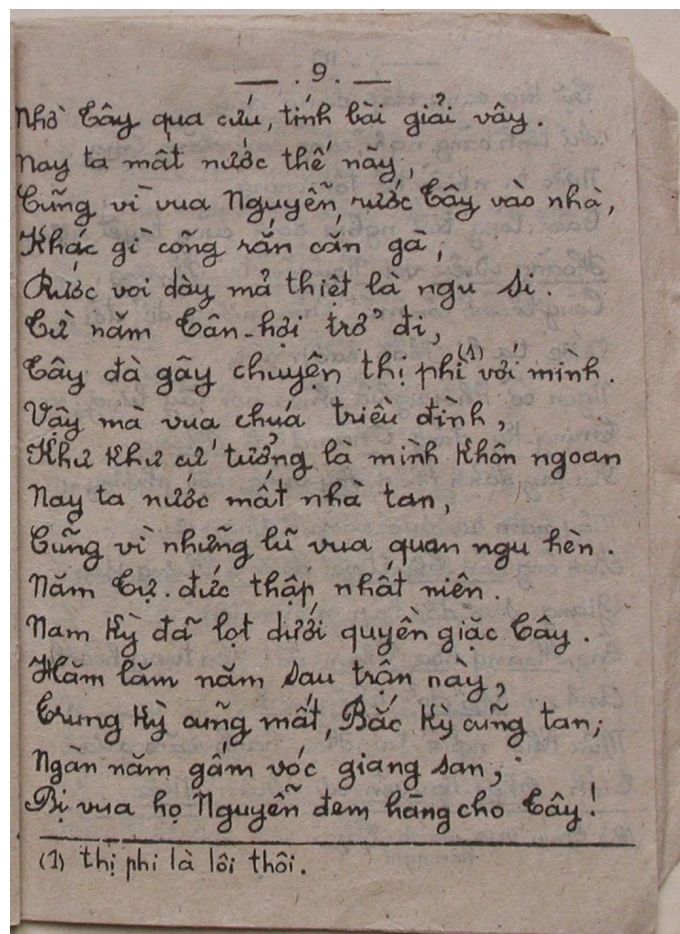 — . 9 . —
Nhờ Tây qua cứu, tính bài giải vây.
Nay ta mất nước thế này,
Cũng vì vua Nguyễn rước Tây vào nhà,
Khác gì cõng rắn cắn gà,
Rước voi dày mả thiệt là ngu si.
Từ năm Tân-hợi trở đi,
Tây đà gây chuyện thị phi (1) với mình.
Vậy mà vua chúa triều đình,
Khư khư cứ tưởng là mình khôn ngoan
Nay ta nước mất nhà tan,
Cũng vì những lũ vua quan ngu hèn.
Năm Tự. đức thập nhất niên.
Nam Kỳ đã lọt dưới quyền giặc Tây.
Hăm lăm năm sau trận này,
Trung Kỳ cũng mất, Bắc Kỳ cũng tan;
Ngàn năm gấm vóc giang san,
Bị vua họ Nguyễn đem hàng cho Tây!
(1) thị phi là lôi thôi.